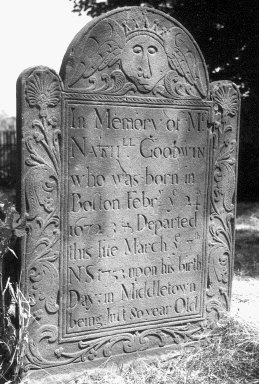 In Memory of Mr
NATHll GOODWIN
who was born in
Boſton Febry ye 24
1672 3 & Departed
this life March ye
NS 1753 upon his birth
Day in Middletown
being juſt 80 year Old